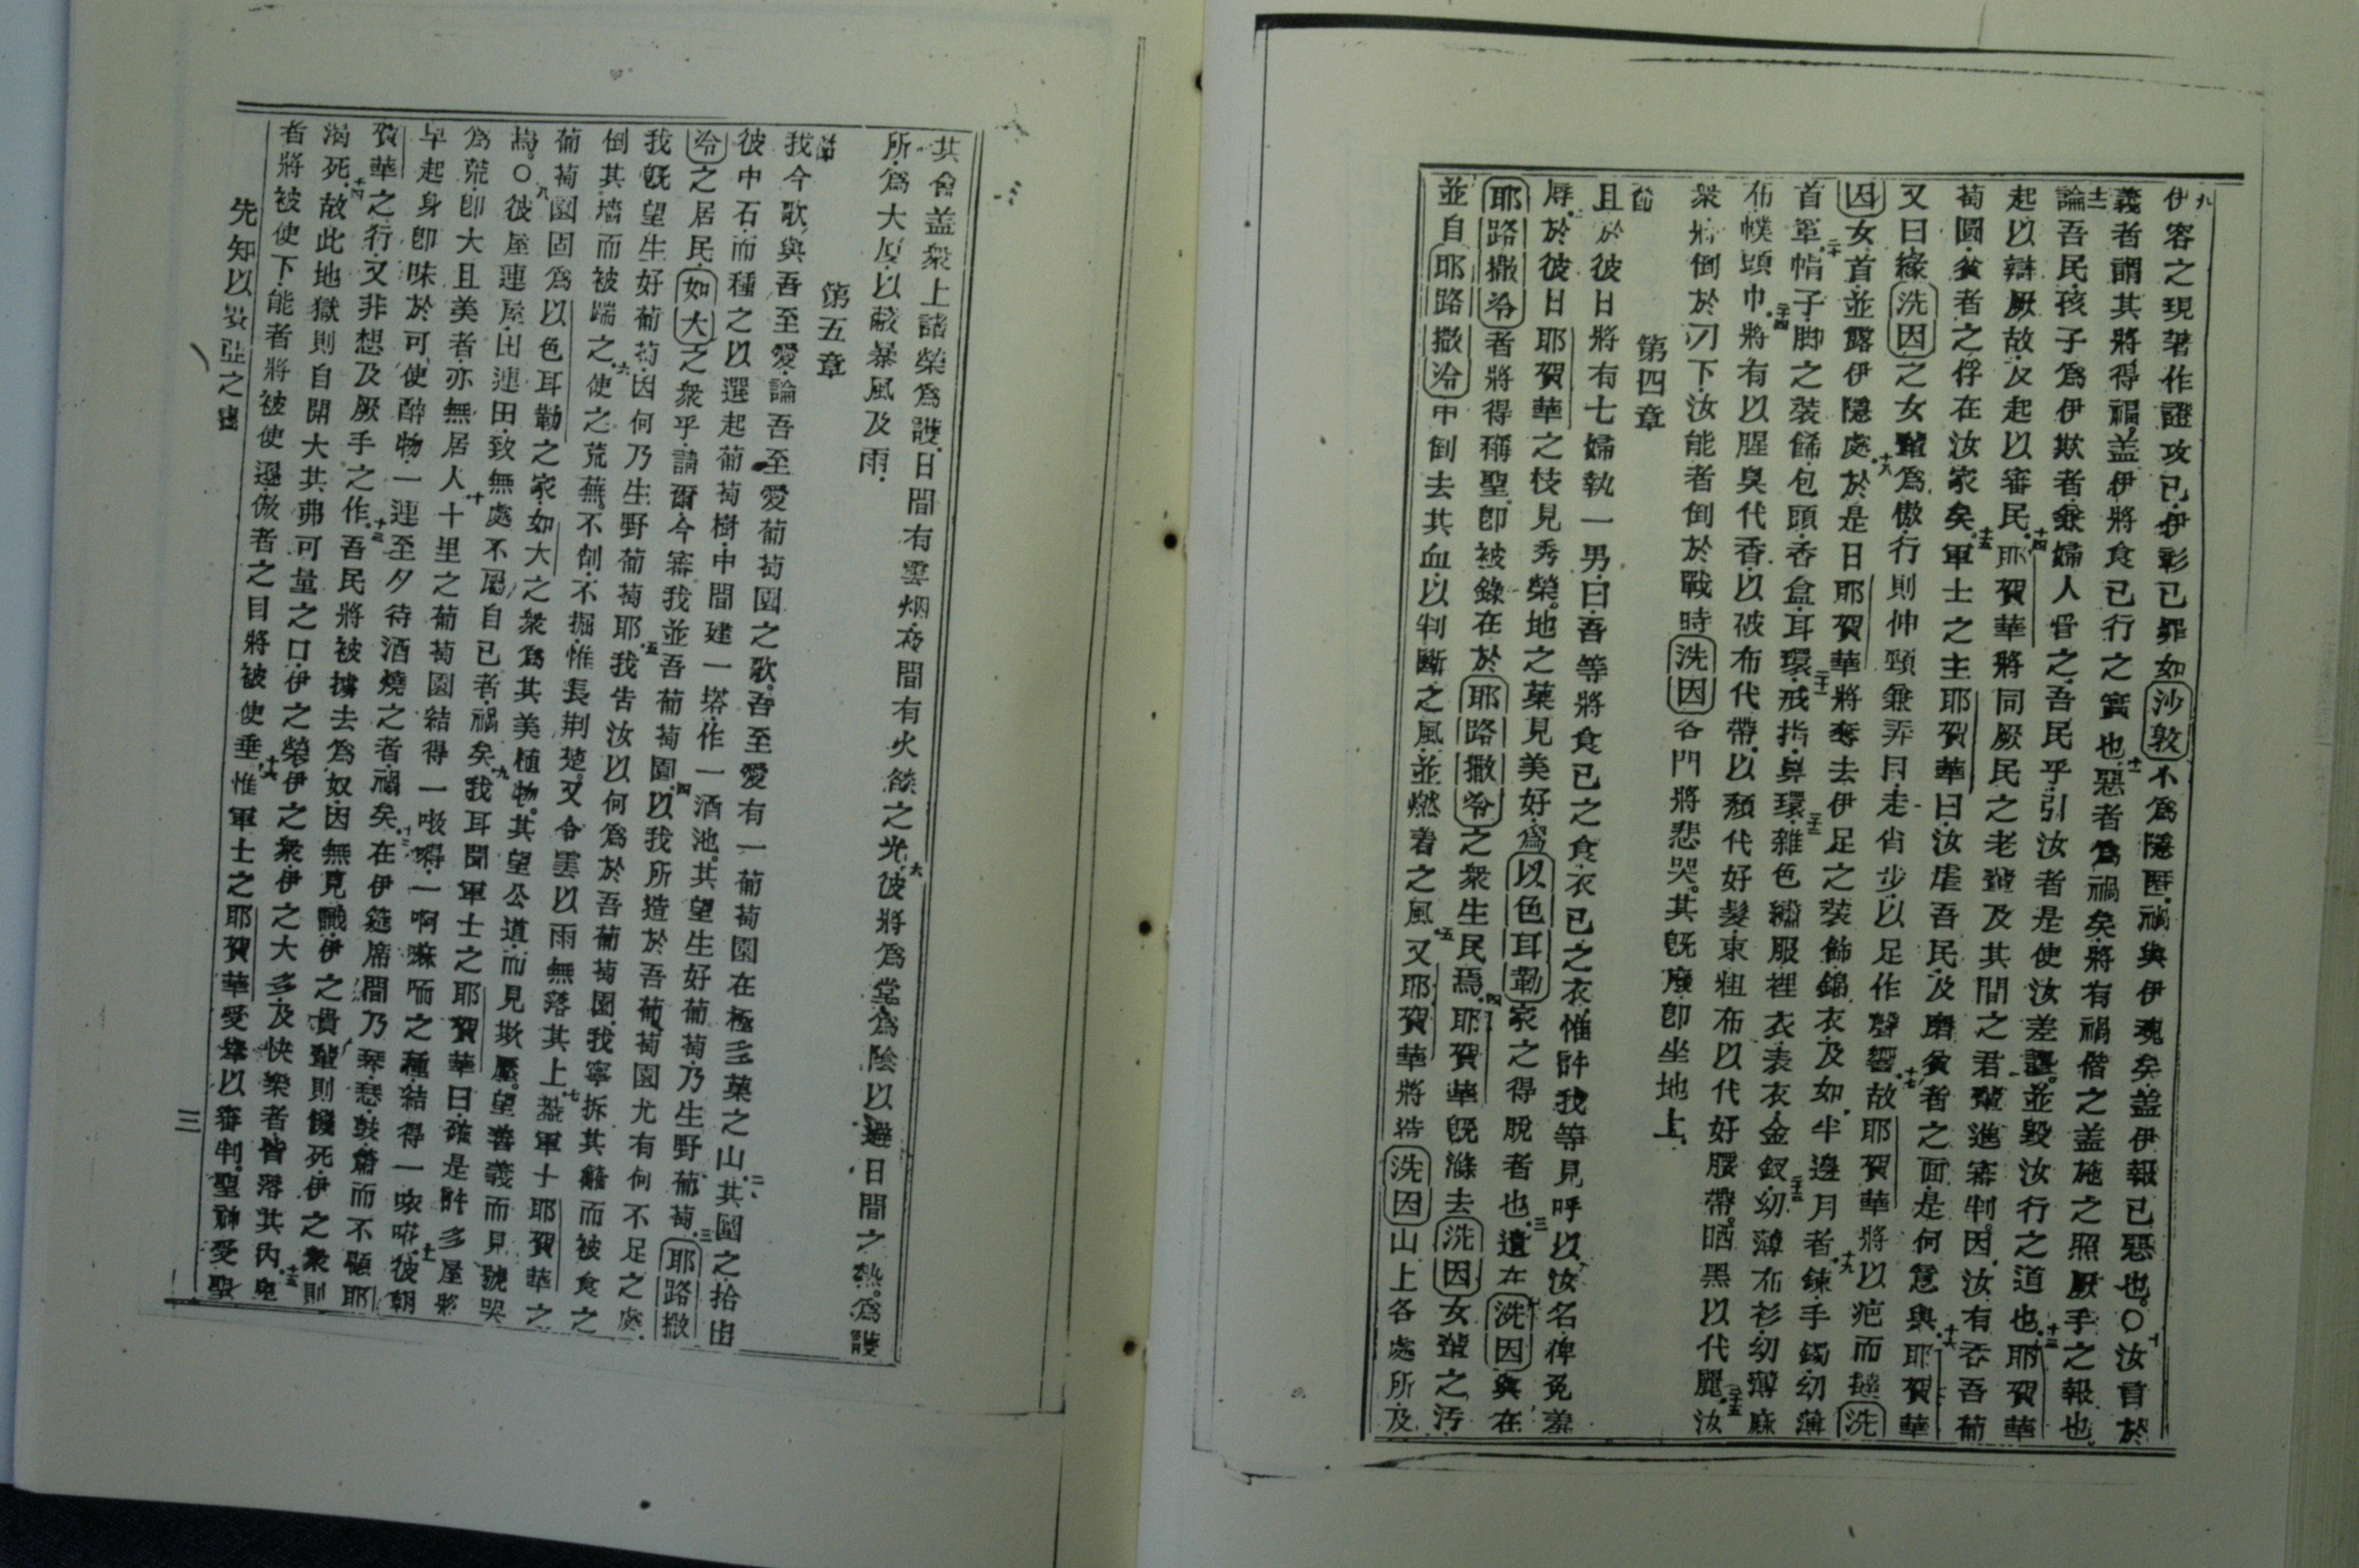 伊容之現著作證攻已伊彰已罪如沙敦不爲隱匿禍與伊魂矣蓋伊報已惡也〇汝首於
義者謂其將得福蓋伊將食已行之實也惡者爲禍矣將有禍偕之蓋施之照厥手之報也
論吾民孩子爲伊欺者兼婦人管之吾民乎引汝者是使汝差謬並毀汝行之道也耶賀華
起以辯厥故及起以審民耶賀華將同厥民之老輩及其間之君輩進審判因汝有吞吾葡
萄園貧者之俘在汝家矣軍士之主耶賀華曰汝虐吾民及磨貧者之面是何意與耶賀華
又曰緣洗因之女輩爲傲行則伸頸兼弄目走省步以足作聲響故耶賀華將以疤而撻洗
因女首並露伊隱處於是日耶賀華將奪去伊足之裝飾錦衣及如半邊月者鍊手鐲幼薄
首罩帽子脚之裝餙包頭香盒耳環戒指鼻環雜色繡服裡衣表衣金釵幼薄布衫幼薄麻
布幞頭巾將有以腥臭代香以破布代帶以頹代好髮束粗布以代好腰帶晒黑以代麗汝
衆將倒於刃下汝能者倒於戰時洗因各門將悲哭其旣廢卽坐地上
第四章
節
且於彼日將有七婦執一男曰吾等將食已之食衣已之衣惟許我等見呼以汝名俾免羞
辱於彼日耶賀華之枝見秀榮地之菓見美好爲以色耳勒家之得脫者也遺在洗因與在
耶路撒冷者將得稱聖卽被錄在於耶路撒冷之衆生民焉耶賀華旣滌去洗因女輩之汚
並自耶路撒冷中倒去其血以判斷之風並燃着之風又耶賀華將造洗因山上各處所及
其會蓋衆上諸榮爲護日間有雲烟夜間有火燄之光彼將爲堂爲陰以避日間之熱爲護
所爲大厦以蔽暴風及雨
第五章
節
我今歌與吾至愛論吾至愛葡萄園之歌吾至愛有一葡萄園在極多菓之山其圍之拾出
彼中石而種之以選起葡萄樹中間建一塔作一酒池其望生好葡萄乃生野葡萄耶路撒
冷之居民如大之衆乎請爾今審我並吾葡萄園以我所造於吾葡萄園尤有何不足之處
我旣望生好葡萄因何乃生野葡萄耶我吿汝以何爲於吾葡萄園我寧拆其籬而被食之
倒其墻而被踹之使之荒蕪不刨不掘惟長荆楚又令雲以雨無落其上蓋軍士耶賀華之
葡萄園固爲以色耳勒之家如大之衆爲其美植物其望公道而見欺壓望善義而見號哭
焉〇彼屋連屋田連田致無處不屬自已者禍矣我耳聞軍士之耶賀華曰確是許多屋將
爲荒卽大且美者亦無居人十里之葡萄園結得一啖嘚一啊嘛啢之種結得一咴啡彼朝
早起身卽味於可使醉物一連至夕待酒燒之者禍矣在伊筵席間乃琴瑟鼓簫而不顧耶
賀華之行又非想及厥手之作吾民將被擄去爲奴因無見識伊之貴輩則饑死伊之衆則
渴死故此地獄則自開大其弗可量之口伊之榮伊之衆伊之大多及快樂者皆落其內卑
者將被使下能者將被使遜傲者之目將被使垂惟軍士之耶賀華受舉以審判聖神受聖
先知以賽亞之書
三